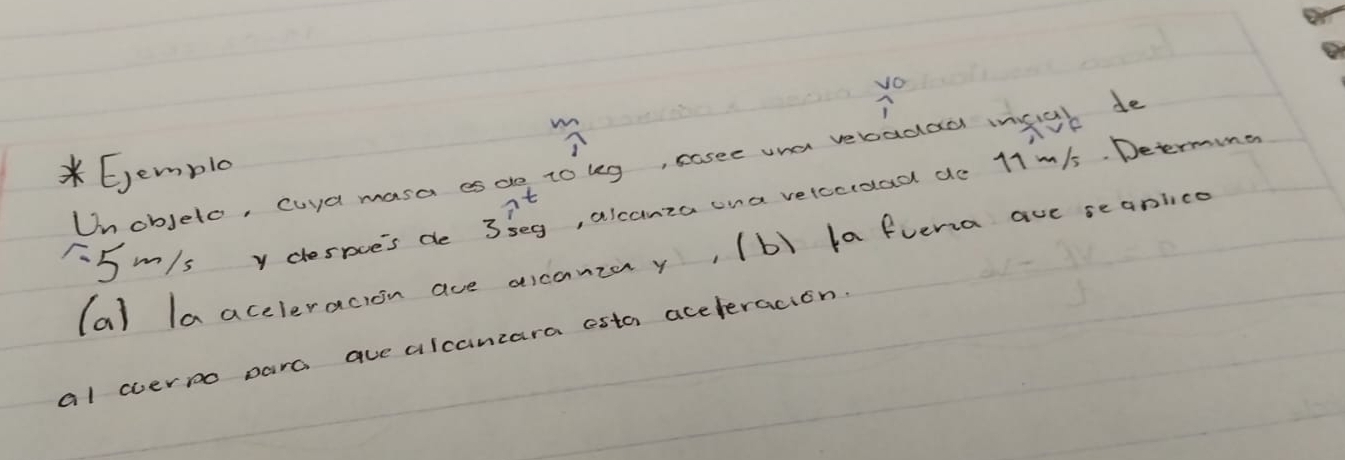 * Ejemplo
m
vo
Un objeto, cuya masa es de 10 kg, posee una velocidad inicial de
t
vf
5 m/s y después de 3 seg, alcanza una velocidad de 11 m/s. Determina
(a) la aceleración que alcanza y, (b) la fuerza que se aplico
al cuerpo para que alcanzara esta aceleración.